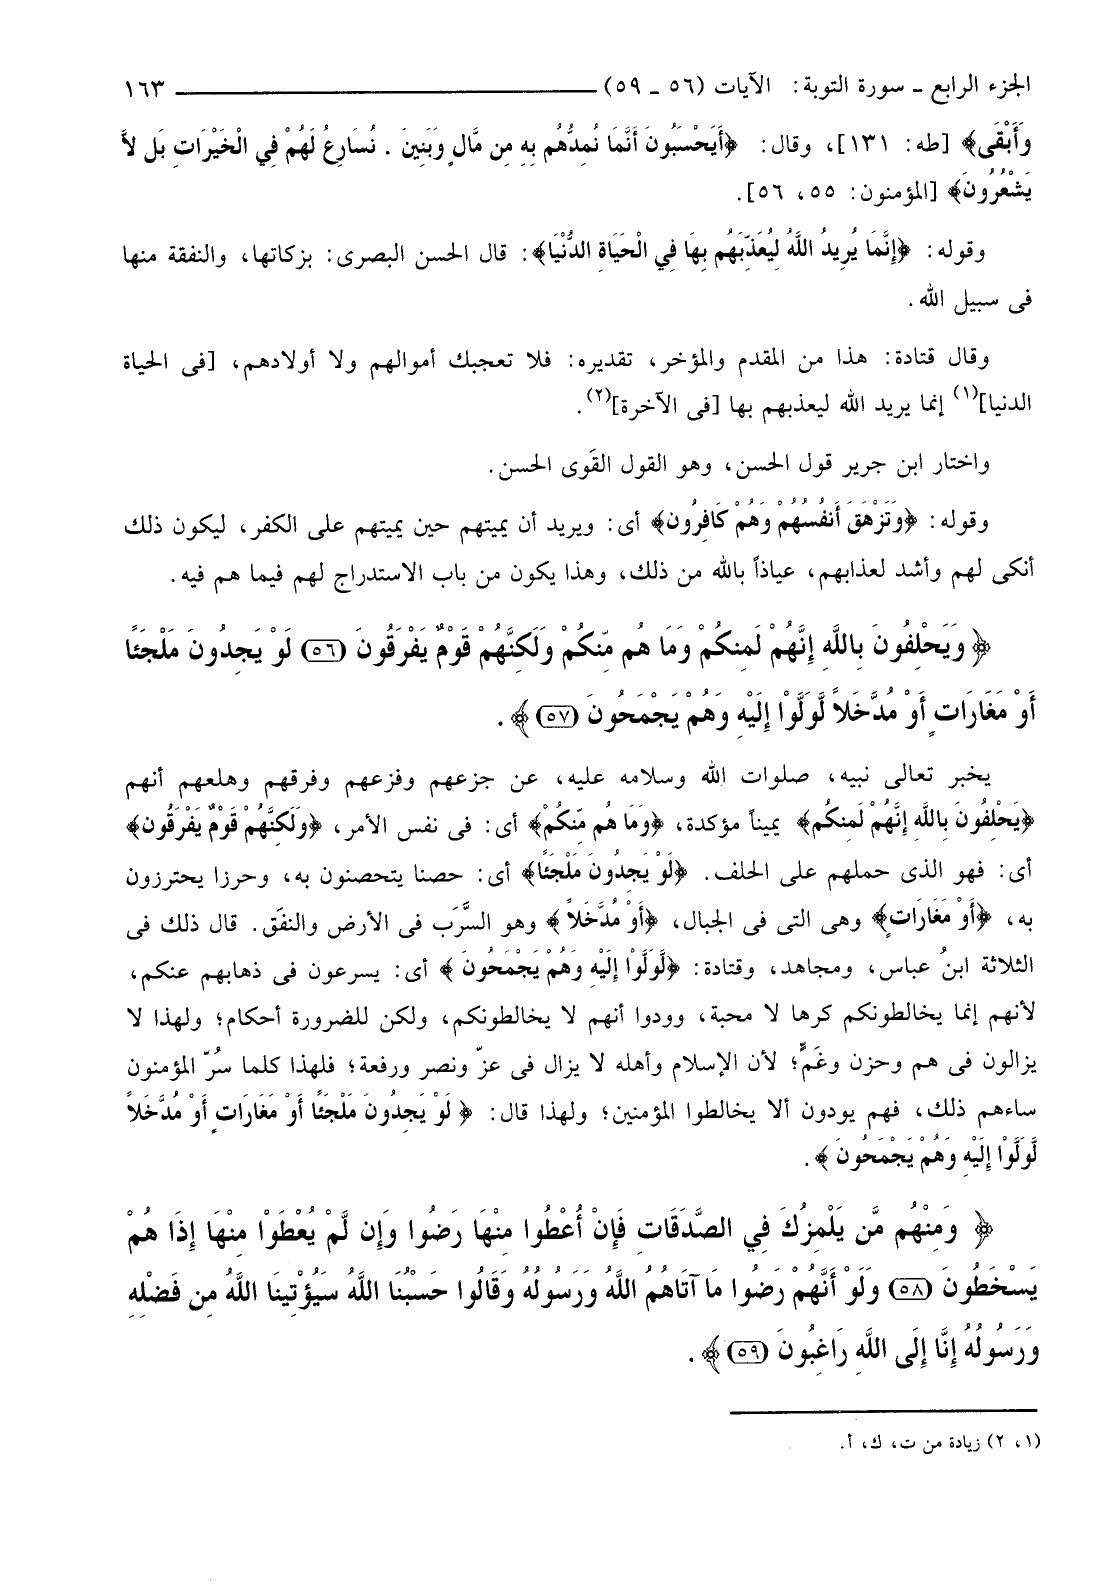 الجزء الرابع - سورة التوبة: الآيات (٥٦ - ٥٩) ١٦٣
وَأَبْقَى﴾ [طه: ١٣١]، وقال: ﴿أَيَحْسَبُونَ أَنَّمَا نُمِدُّهُم بِهِ مِن مَّالٍ وَبَنِينَ . نُسَارِعُ لَهُمْ فِي الْخَيْرَاتِ بَل لاَّ
يَشْعُرُونَ﴾ [المؤمنون: ٥٥، ٥٦].
وقوله: ﴿إِنَّمَا يُرِيدُ اللَّهُ لِيُعَذِّبَهُم بِهَا فِي الْحَيَاةِ الدُّنْيَا﴾: قال الحسن البصرى: بزكاتها، والنفقة منها
فى سبيل الله.
وقال قتادة: هذا من المقدم والمؤخر، تقديره: فلا تعجبك أموالهم ولا أولادهم، [فى الحياة
الدنيا](١) إنما يريد الله ليعذبهم بها [فى الآخرة](٢).
واختار ابن جرير قول الحسن، وهو القول القَوى الحسن.
وقوله: ﴿وَتَزْهَقَ أَنفُسُهُمْ وَهُمْ كَافِرُون﴾ أى: ويريد أن يميتهم حين يميتهم على الكفر، ليكون ذلك
أنكى لهم وأشد لعذابهم، عياذاً بالله من ذلك، وهذا يكون من باب الاستدراج لهم فيما هم فيه.
﴿ وَيَحْلِفُونَ بِاللَّهِ إِنَّهُمْ لَمِنكُمْ وَمَا هُم مِّنكُمْ وَلَكِنَّهُمْ قَوْمٌ يَفْرَقُونَ (٥٦) لَوْ يَجِدُونَ مَلْجَئًا
أَوْ مَغَارَاتٍ أَوْ مُدَّخَلاً لَّوَلَّوْا إِلَيْهِ وَهُمْ يَجْمَحُونَ (٥٧) ﴾.
يخبر تعالى نبيه، صلوات الله وسلامه عليه، عن جزعهم وفزعهم وفرقهم وهلعهم أنهم
﴿يَحْلِفُونَ بِاللَّهِ إِنَّهُمْ لَمِنكُم﴾ يميناً مؤكدة، ﴿وَمَا هُم مِّنكُمْ﴾ أى: فى نفس الأمر، ﴿وَلَكِنَّهُمْ قَوْمٌ يَفْرَقُون﴾
أى: فهو الذى حملهم على الحلف. ﴿لَوْ يَجِدُونَ مَلْجَئًا﴾ أى: حصنا يتحصنون به، وحرزا يحترزون
به، ﴿أَوْ مَغَارَاتٍ﴾ وهى التى فى الجبال، ﴿أَوْ مُدَّخَلاً﴾ وهو السَّرَب فى الأرض والنفَق. قال ذلك فى
الثلاثة ابنُ عباس، ومجاهد، وقتادة: ﴿لَّوَلَّوْا إِلَيْهِ وَهُمْ يَجْمَحُونَ ﴾ أى: يسرعون فى ذهابهم عنكم،
لأنهم إنما يخالطونكم كرها لا محبة، وودوا أنهم لا يخالطونكم، ولكن للضرورة أحكام؛ ولهذا لا
يزالون فى هم وحزن وغَمٍّ؛ لأن الإسلام وأهله لا يزال فى عزّ ونصر ورفعة؛ فلهذا كلما سُرّ المؤمنون
ساءهم ذلك، فهم يودون ألا يخالطوا المؤمنين؛ ولهذا قال: ﴿ لَوْ يَجِدُونَ مَلْجَئًا أَوْ مَغَارَاتٍ أَوْ مُدَّخَلاً
لَّوَلَّوْا إِلَيْهِ وَهُمْ يَجْمَحُونَ ﴾.
﴿ وَمِنْهُم مَّن يَلْمِزُكَ فِي الصَّدَقَاتِ فَإِنْ أُعْطُوا مِنْهَا رَضُوا وَإِن لَّمْ يُعْطَوْا مِنْهَا إِذَا هُمْ
يَسْخَطُونَ (٥٨) وَلَوْ أَنَّهُمْ رَضُوا مَا آتَاهُمُ اللَّهُ وَرَسُولُهُ وَقَالُوا حَسْبُنَا اللَّهُ سَيُؤْتِينَا اللَّهُ مِن فَضْلِهِ
وَرَسُولُهُ إِنَّا إِلَى اللَّهِ رَاغِبُونَ (٥٩) ﴾.
(١، ٢) زيادة من ت، ك، أ.